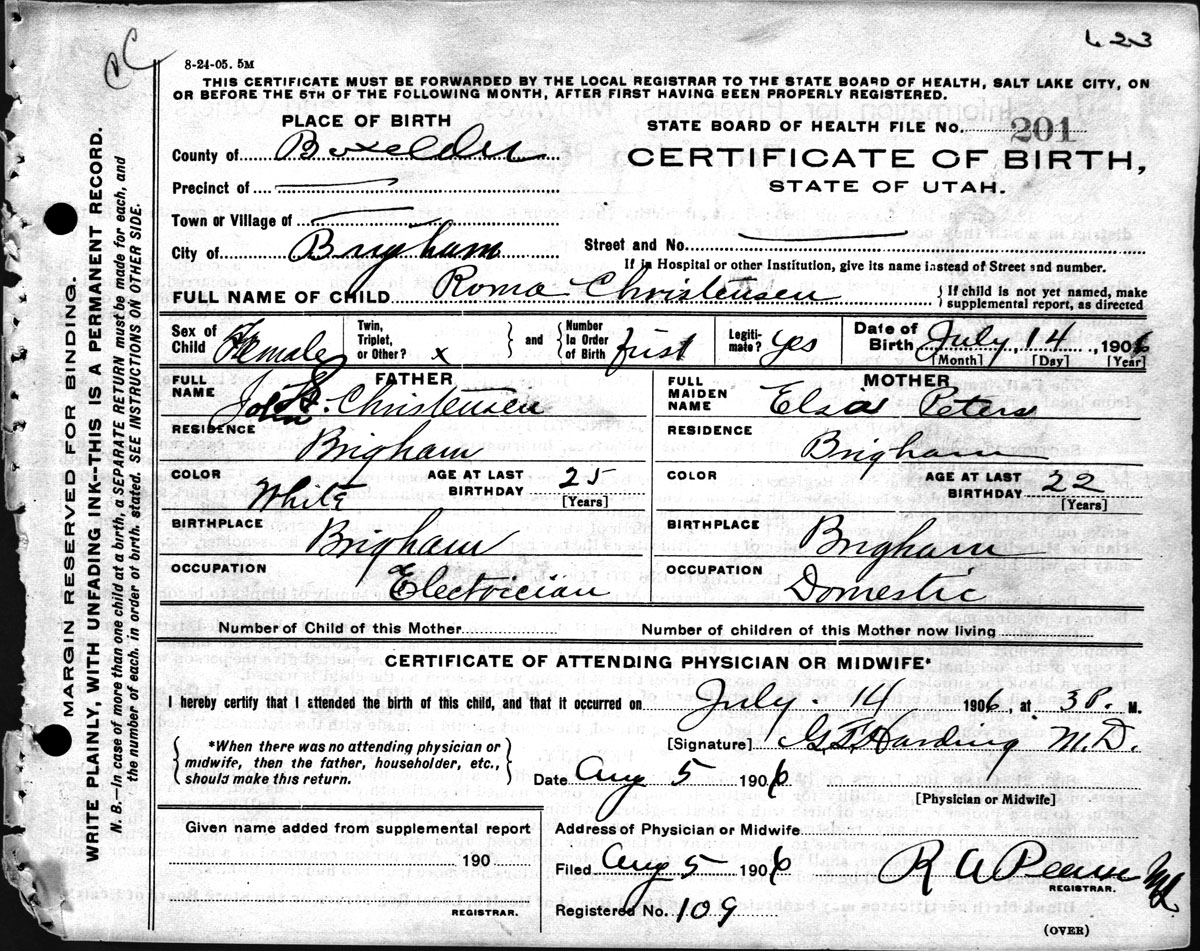 623
8-24-05. 5M
THIS CERTIFICATE MUST BE FORWARDED BY THE LOCAL REGISTRAR TO THE STATE BOARD OF HEALTH, SALT LAKE CITY, ON
OR BEFORE THE 5TH OF THE FOLLOWING MONTH, AFTER FIRST HAVING BEEN PROPERLY REGISTERED.
MARGIN RESERVED FOR BINDING.
WRITE PLAINLY, WITH UNFADING INK--THIS IS A PERMANENT RECORD.
N. B.—In case of more than one child at a birth, a SEPARATE RETURN must be made for each, and
the number of each, in order of birth, stated. SEE INSTRUCTIONS ON OTHER SIDE.
PLACE OF BIRTH
County of Boxelder
Precinct of
Town or Village of
City of Brigham
STATE BOARD OF HEALTH FILE No. 201
CERTIFICATE OF BIRTH,
STATE OF UTAH.
Street and No.
If in Hospital or other Institution, give its name instead of Street and number.
FULL NAME OF CHILD Roma Christensen { If child is not yet named, make
supplemental report, as directed
Sex of Child Female
Twin, Triplet, or Other? x } and { Number In Order of Birth first
Legiti- mate? yes
Date of Birth July, 14, 1906
[Month] [Day] [Year]
FATHER
FULL NAME John S. Christensen
RESIDENCE Brigham
COLOR White AGE AT LAST BIRTHDAY 25 [Years]
BIRTHPLACE Brigham
OCCUPATION Electrician
MOTHER
FULL MAIDEN NAME Elsa Peters
RESIDENCE Brigham
COLOR AGE AT LAST BIRTHDAY 22 [Years]
BIRTHPLACE Brigham
OCCUPATION Domestic
Number of Child of this Mother Number of children of this Mother now living
CERTIFICATE OF ATTENDING PHYSICIAN OR MIDWIFE*
I hereby certify that I attended the birth of this child, and that it occurred on July. 14 1906, at 3 P. M.
{ *When there was no attending physician or
midwife, then the father, householder, etc.,
should make this return. }
[Signature] G. F. Harding M.D.
Date Aug 5 1906
[Physician or Midwife]
Given name added from supplemental report
190
REGISTRAR.
Address of Physician or Midwife
Filed Aug 5 1906 R A Pearse
REGISTRAR.
Registered No. 109
(OVER)